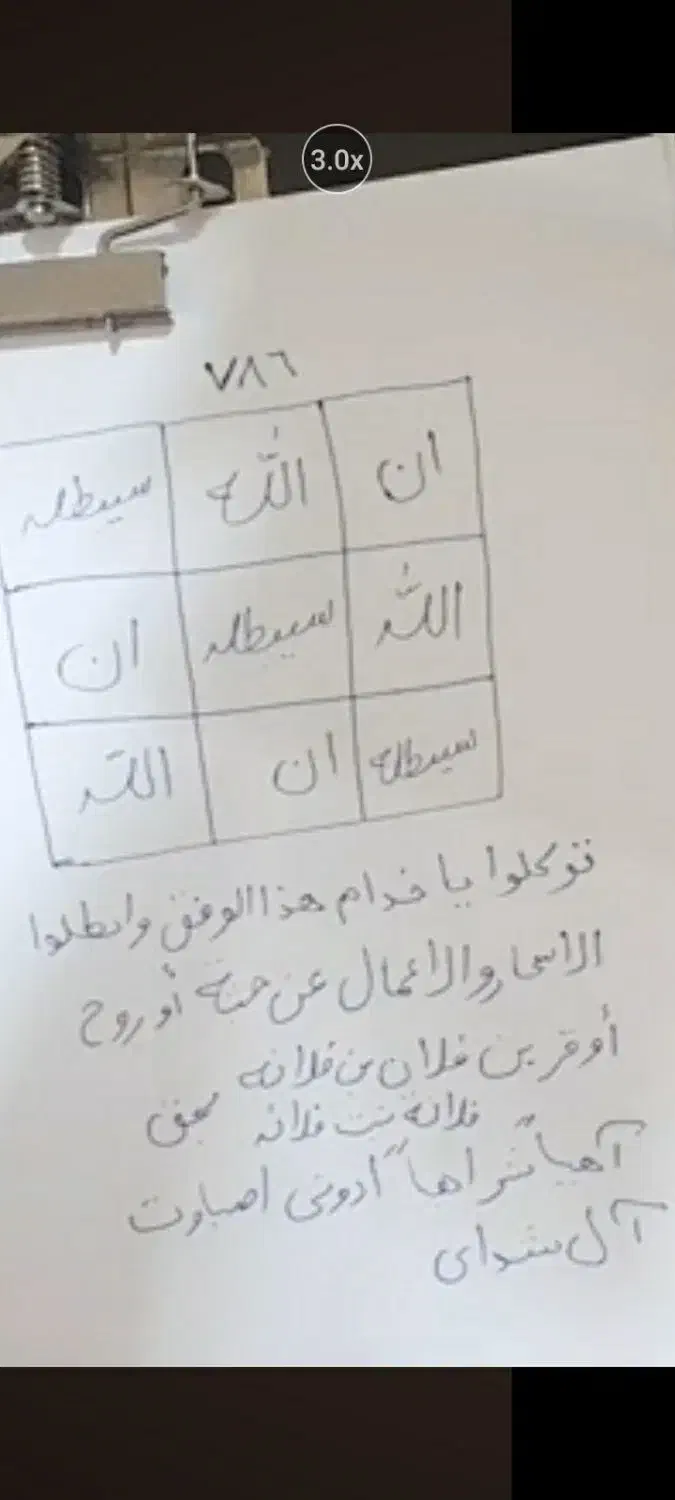 3.0x
٧٨٦
ان الله سيبطله
الله سيبطله ان
سيبطله ان الله
فتوكلوا يا خدام هذا الوفق وابطلوا
الاسحار والاعمال عن جثة أو روح
أو قرين فلان بن فلانه
فلانة بنت فلانه بحق
آهياً شراهاً أدونى اصباوت
آل شداى